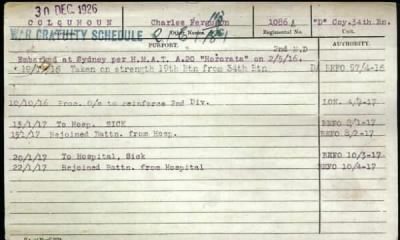 30 DEC. 1926
COLQUHOUN Charles Ferguson 1086 A "D" Coy. 34th. Bn.
WAR GRATUITY SCHEDULE Regimental No. Unit.
PURPORT. AUTHORITY.
2nd M.D
Embarked at Sydney per H.M.A.T. A.20 "Hororata" on 2/5/16.
Taken on strength 19th Btn from 34th Btn BEFO 57/4-16
10/10/16 Proc. O/s to reinforce 2nd Div.
13/1/17 To Hosp. SICK BEFO 8/1-17
15/1/17 Rejoined Battn. from Hosp. BEFO 8/2-17
20/1/17 To Hospital, Sick BEFO 10/3-17
22/1/17 Rejoined Battn. from Hospital BEFO 10/4-17